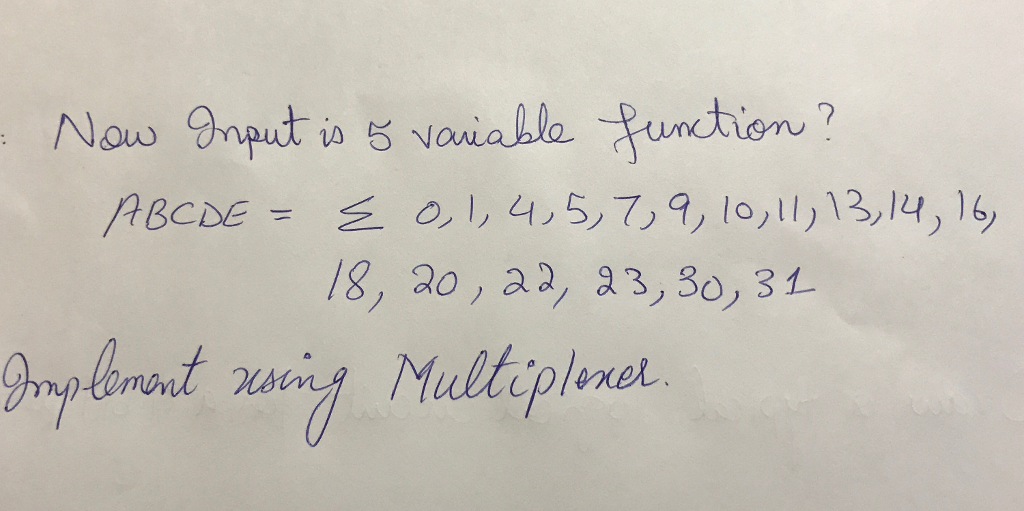 : Now Input is 5 variable function?
ABCDE = Σ 0, 1, 4, 5, 7, 9, 10, 11, 13, 14, 16,
18, 20, 22, 23, 30, 31
Implement using Multiplexer.